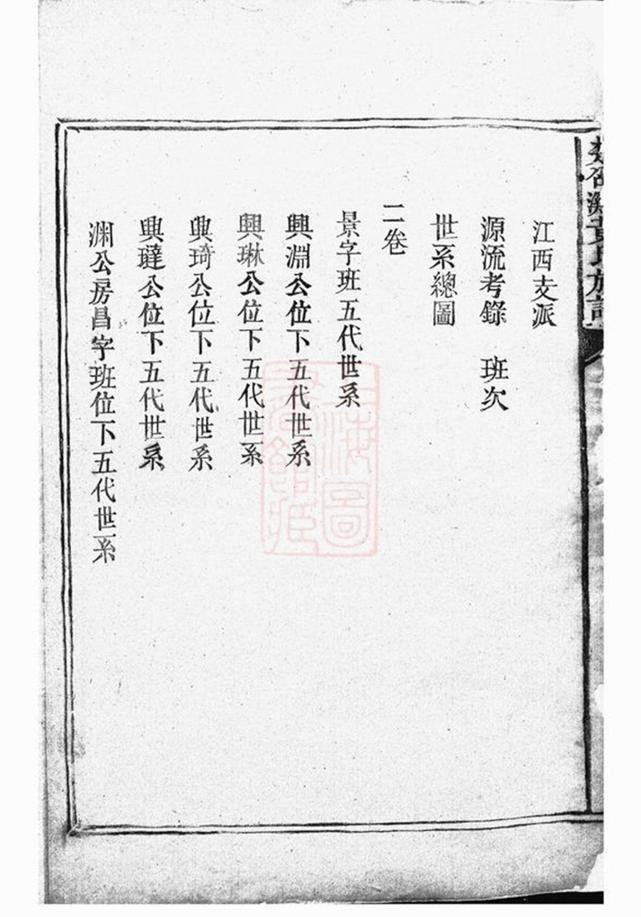 黃氏族譜
江西支派
源流考錄 班次
世系總圖
二卷
景字班五代世系
興淵公位下五代世系
興琳公位下五代世系
興琦公位下五代世系
興璉公位下五代世系
渊公房昌字班位下五代世系